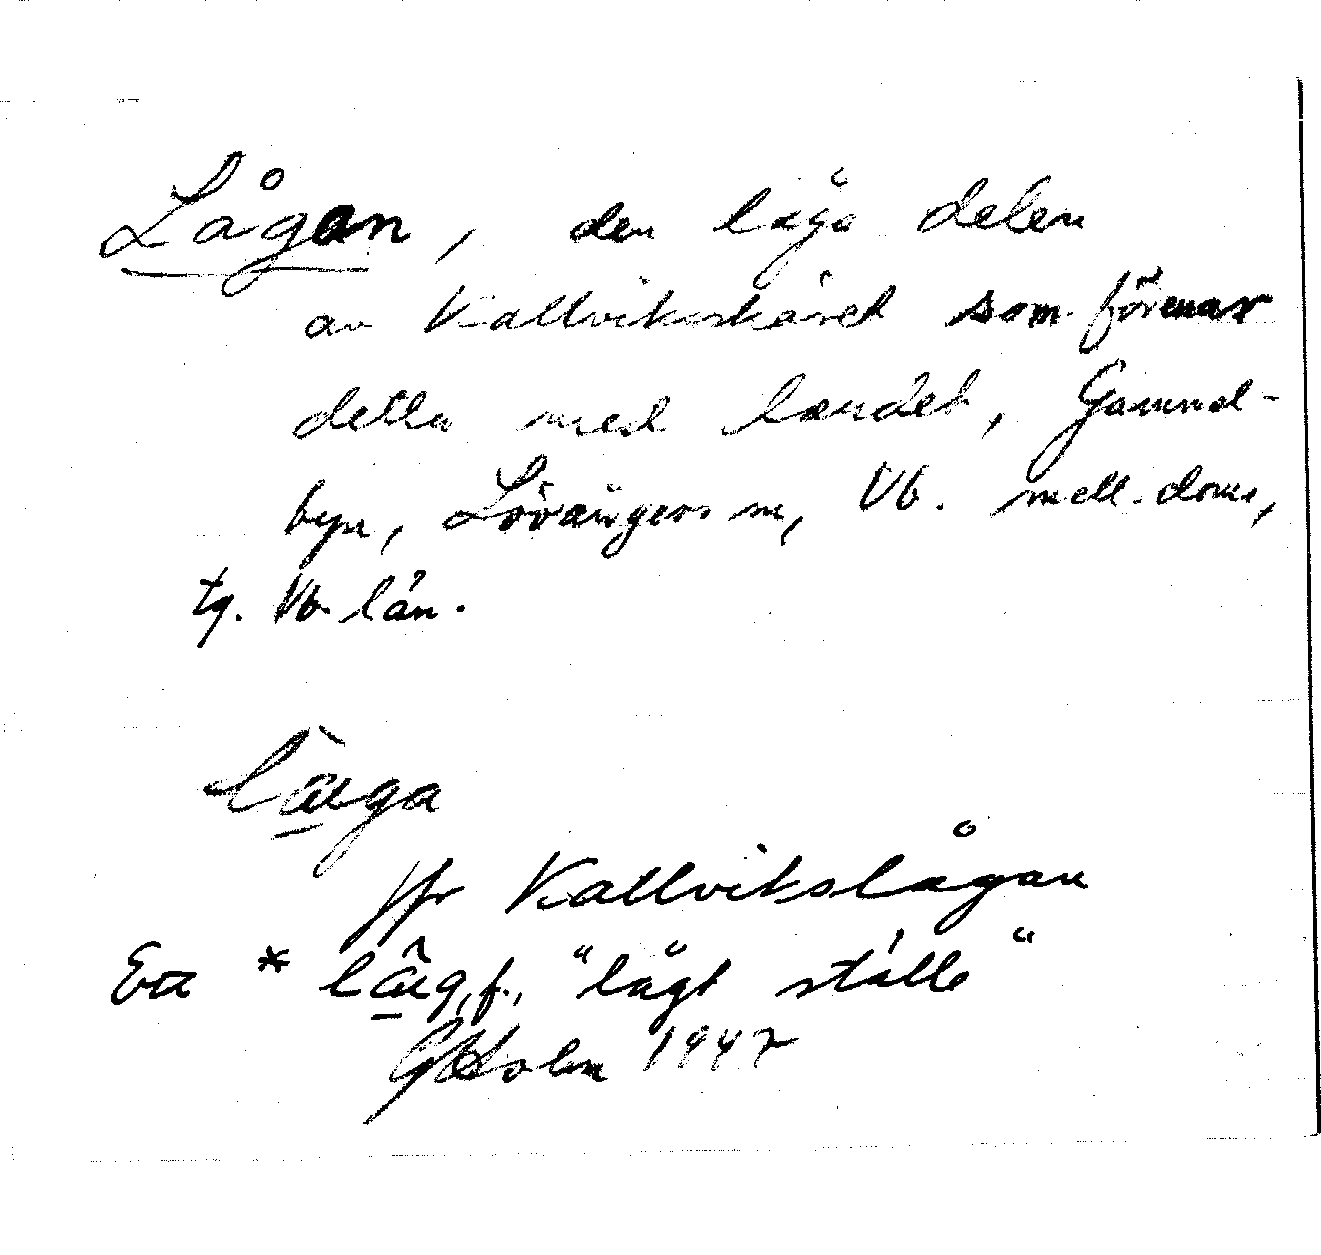 Lågan, den låga delen
av Kallviksskäret som förenar
detta med landet, Gammel-
byn, Lövångers sn, Vb. mell. doms,
tg. Vb. län.
lâuga
Jfr Kallvikslågan
Ett * lâug, f., "lågt ställe"
G Holm 1947